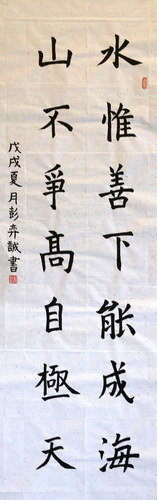 水惟善下能成海
山不爭髙自極天
戊戌夏月彭弈誠書